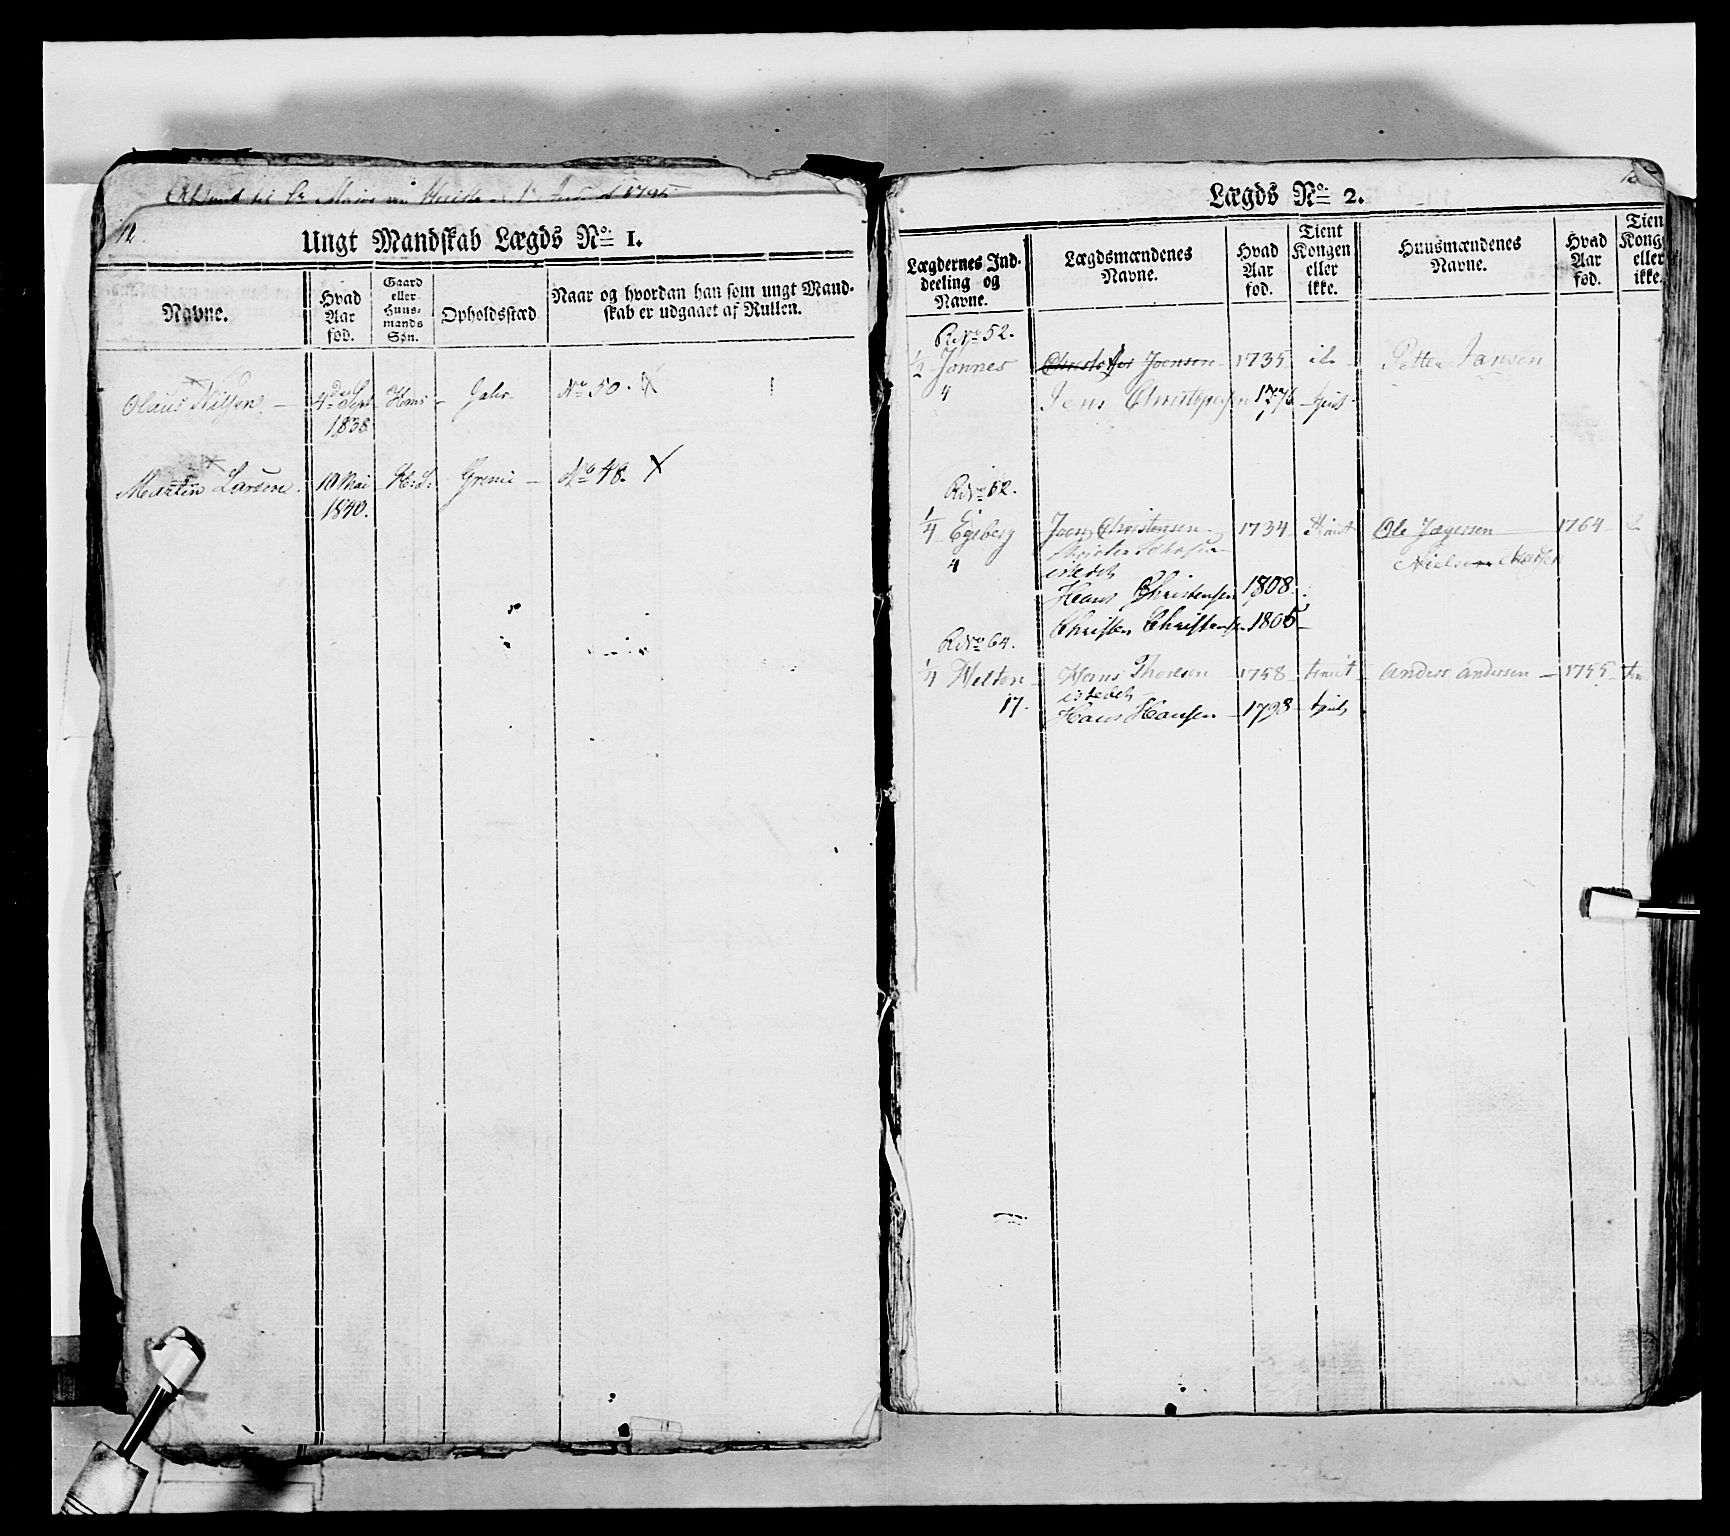 12.
Ungt Mandskab Lægds No. 1.
Navne.
Hvad Aar fød.
Gaard eller Huusmands Søn.
Opholdsstæd
Naar og hvordan han som ungt Mandskab er udgaaet af Rullen.
Olaus Nilsen
4de Sept 1838
No 50. X
Martin Larsen
10 Mai 1840.
H. S.
No 48. X
Lægds No. 2.
Lægdernes Inddeeling og Navne.
Lægdsmændenes Navne.
Hvad Aar fød.
Tient Kongen eller ikke.
Huusmændenes Navne.
Hvad Aar fød.
Tien Konge eller ikke.
R No 52.
1/2 Jonnes
Christoffer Joensen 1735
Petter Jansen
4
Jens Christophersen 1776
R No 62.
1/4 Egeberg
Joen Christensen 1734 tient
Ole Jegersen 1764
4
istedet
Hans Christensen 1808
Christen Christensen 1805
R No 64.
1/4 Welton
Hans Thoresen 1758 tient
Anders Andersen 1755
17.
istedet
Hans Hansen 1798 tient